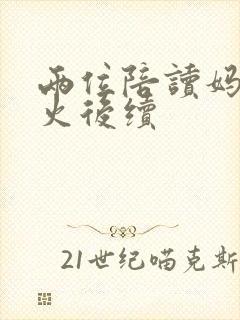 兩位陪讀媽
火後續
21世纪喵克斯